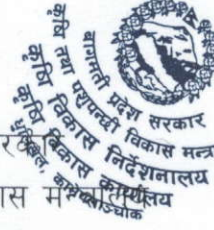 बागमती प्रदेश सरकार
कृषि तथा पशुपन्छी विकास मन्त्रा
कृषि विकास निर्देशनालय
कृषि विकास कार्यालय
काभ्रेपलाञ्चोक